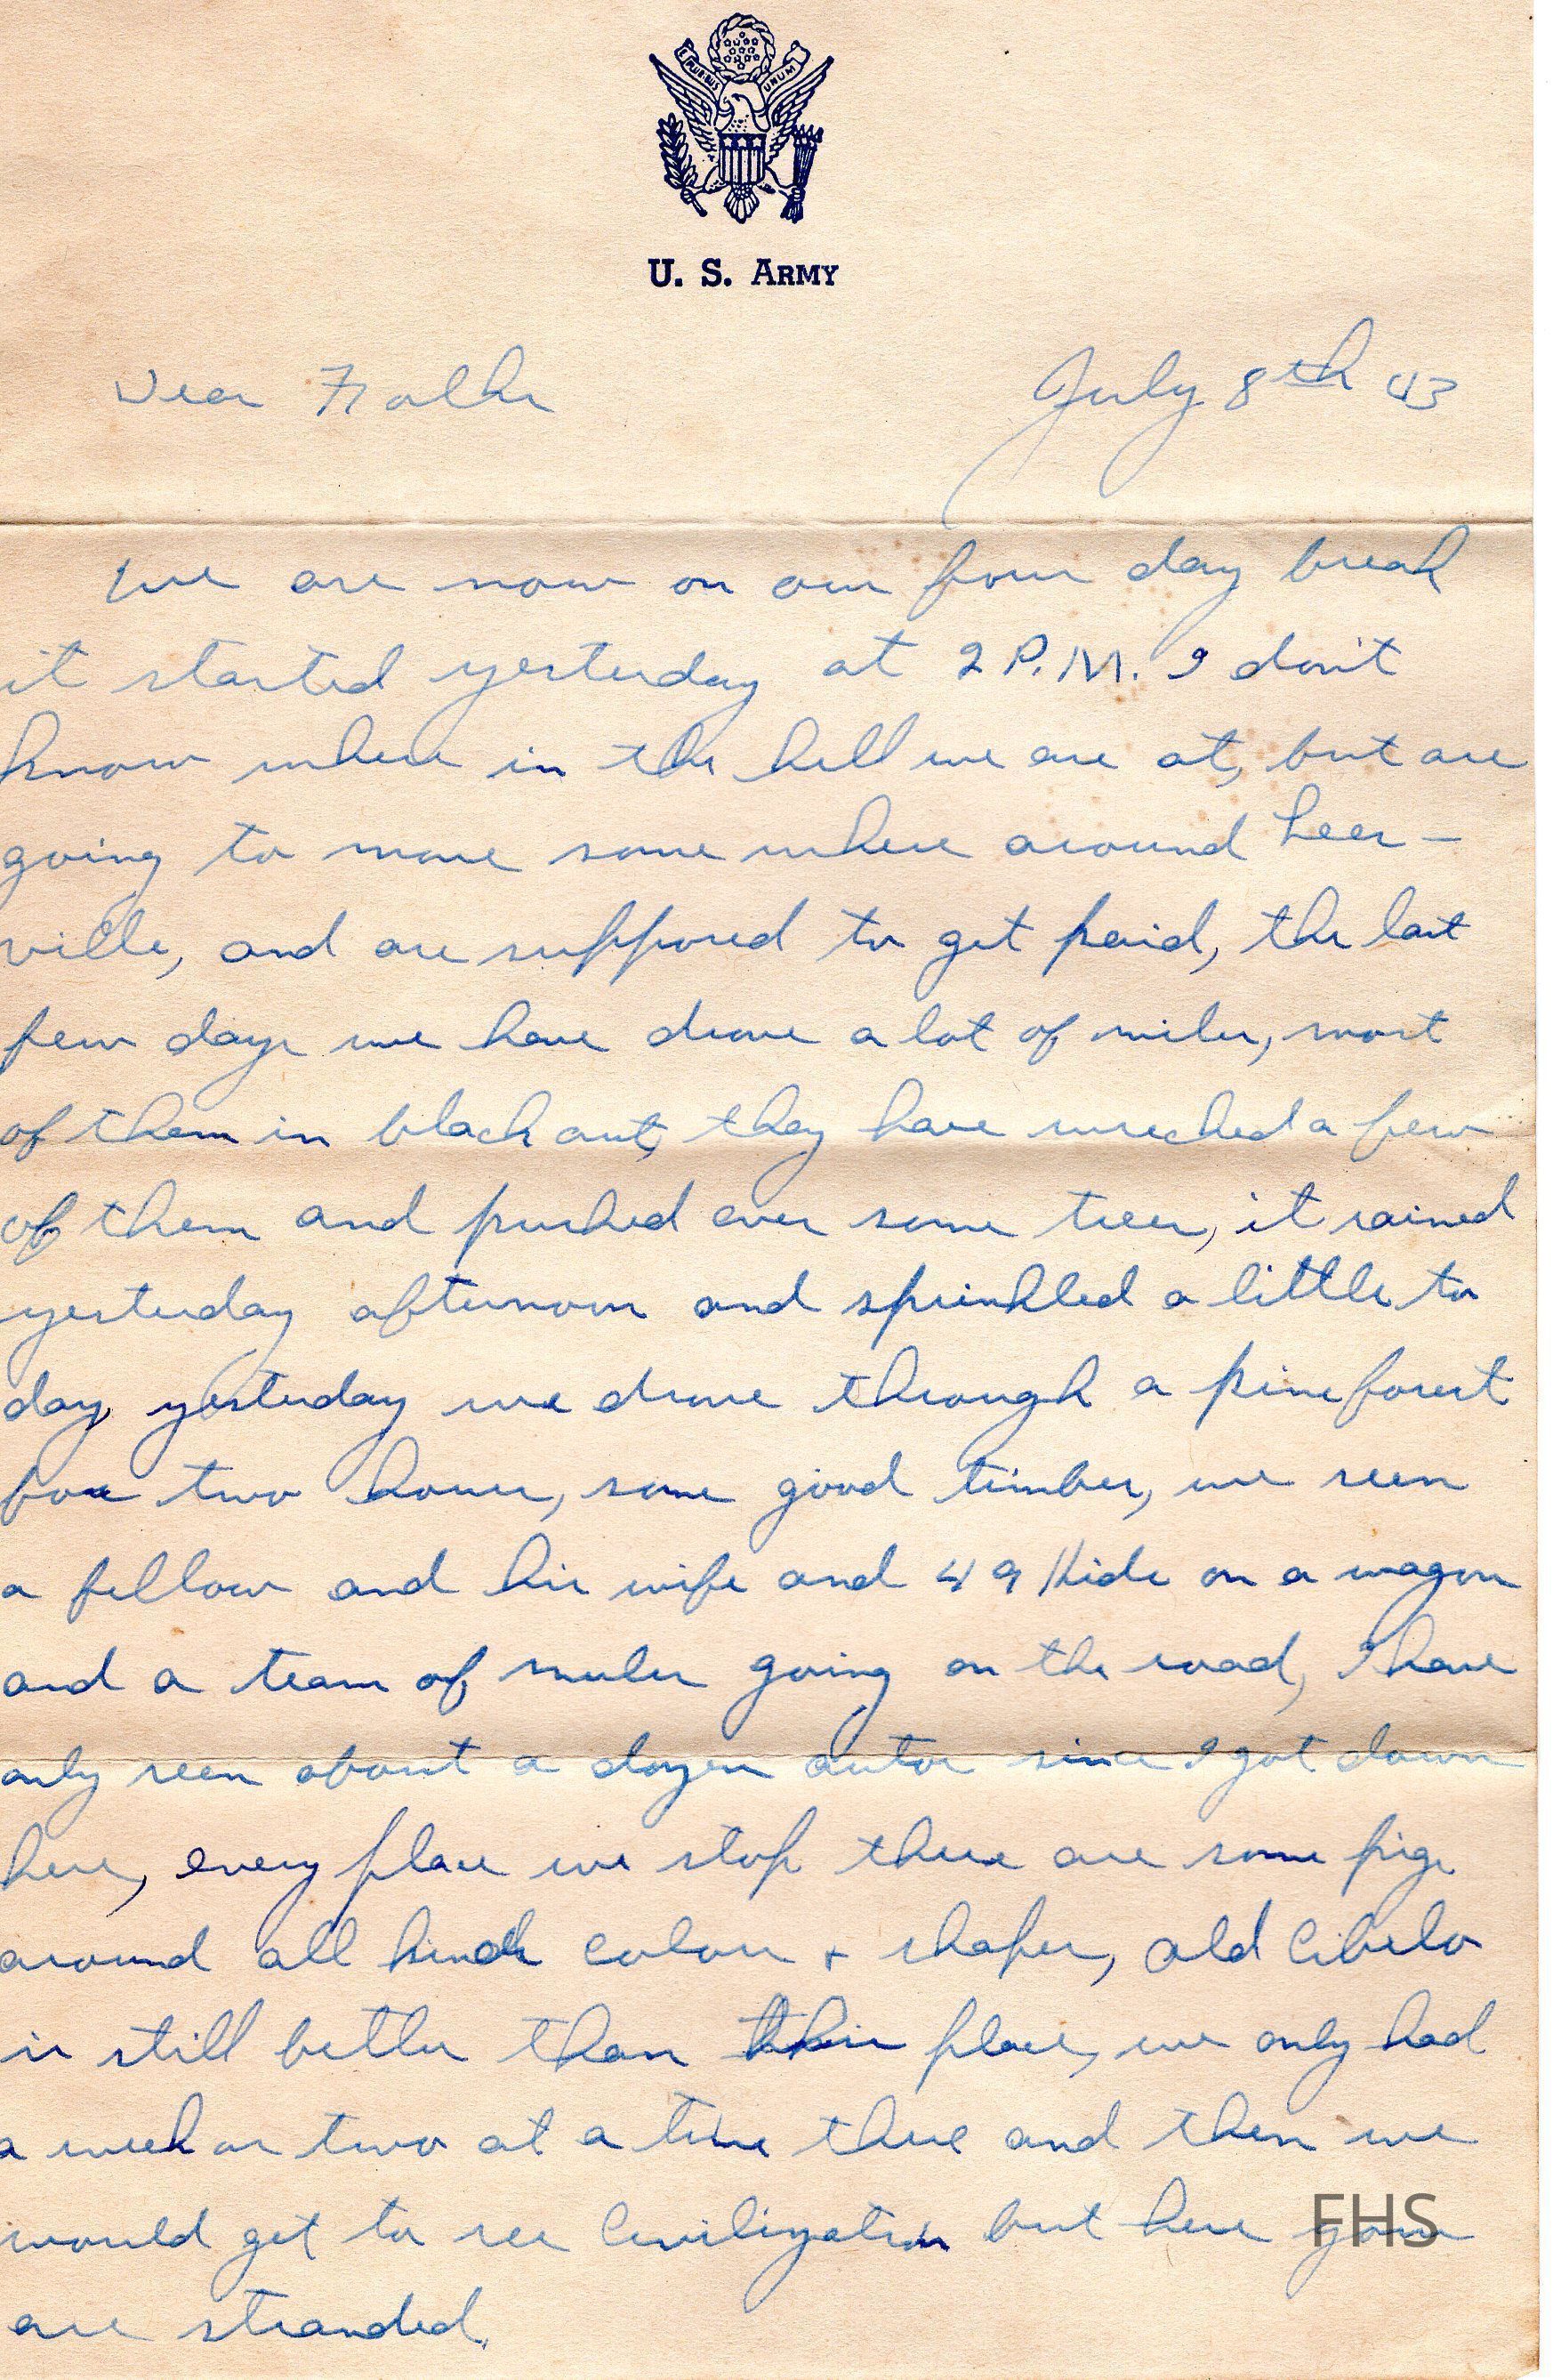 E PLURIBUS UNUM
U. S. ARMY
Dear Folks
July 8th 43
We are now on our four day break
it started yesterday at 2 P.M. I don't
know where in the hell we are at, but are
going to move some where around Lees-
ville, and are suppored to get paid, the last
few days we have drove a lot of miles, most
of them in black out, they have wrecked a few
of them and pushed over some trees, it rained
yesterday afternoon and sprinkled a little to
day, yesterday we drove through a pine forest
for two hours, some good timber, we seen
a fellow and his wife and 49 Kids on a wagon
and a team of mules going on the road, I have
only seen about a dozen autos since I got down
here, every place we stop there are some pigs
around all kinds colors + shapes, old Cibelo
is still better than this place, we only had
a week or two at a time there and then we
would get to see Civilization but here your
are stranded.
FHS